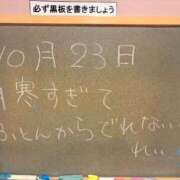 必ず黒板を書きましょう
10月23日
寒すぎて
ふとんからでれない
れい